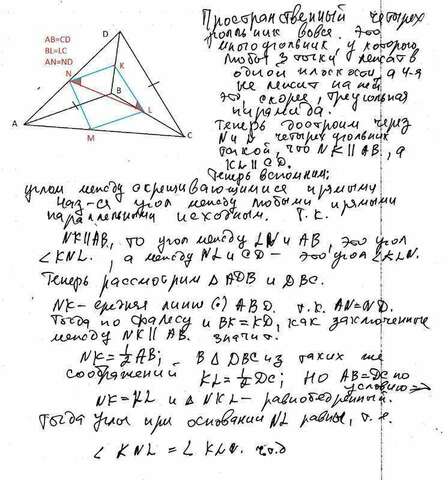 AB=CD
BL=LC
AN=ND
D
N
K
B
L
A
M
C
Пространственный четырех
угольник вовсе. Это
многоугольник, у которого
любые 3 точки лежат в
одной плоскости, а 4-я
не лежит на ней
Это, скорее, треугольная
пирамида.
Теперь достроим через
N и L четырехугольник
такой, что NK||AB, а
KL||CD.
Теперь вспомним;
углом между скрещивающимися прямыми
наз-ся угол между любыми прямыми
параллельными исходным. Т.К.
NK||AB, то угол между LN и AB, это угол
∠KNL, а между NL и CD - это угол ∠KLN.
Теперь рассмотрим △ ADB и DBC.
NK - средняя линия ABD. т.к. AN=ND.
Тогда по фалесу и BK=KD, как заключенные
между NK||AB. Значит.
NK=½AB; В △ DBC из таких же
соображений KL=½DC; Но AB=DC по
условию ⇒
NK=KL и △ NKL - равнобедренный.
Тогда углы при основании NL равны, т.е.
∠KNL=∠KLN. ч.т.д